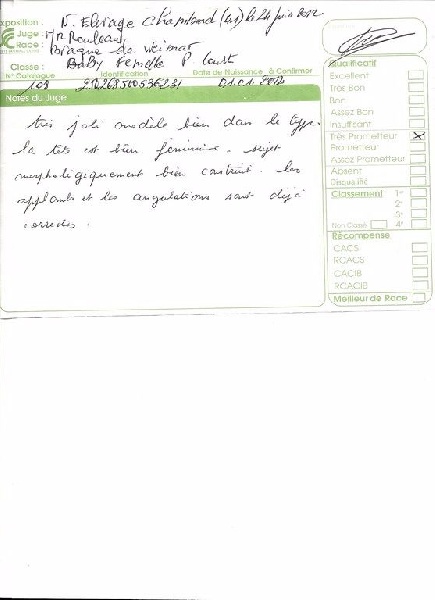 Exposition N. Elevage (41) le 24 juin 2012
Juge : Mr
Race : Braque de Weimar
Classe : Baby Femelle P court
N° Catalogue Identification Date de Naissance à Confirmer
Notes du Juge
très joli modèle bien dans le type
la tête est bien féminine. sujet
morphologiquement bien construit. les
applombs et les angulations sont déjà
correctes.
Qualificatif
Excellent
Très Bon
Bon
Assez Bon
Insuffisant
Très Prometteur X
Prometteur
Assez Prometteur
Absent
Disqualifié
Classement 1er
2e
3e
Non Classé 4e
Récompense
CACS
RCACS
CACIB
RCACIB
Meilleur de Race